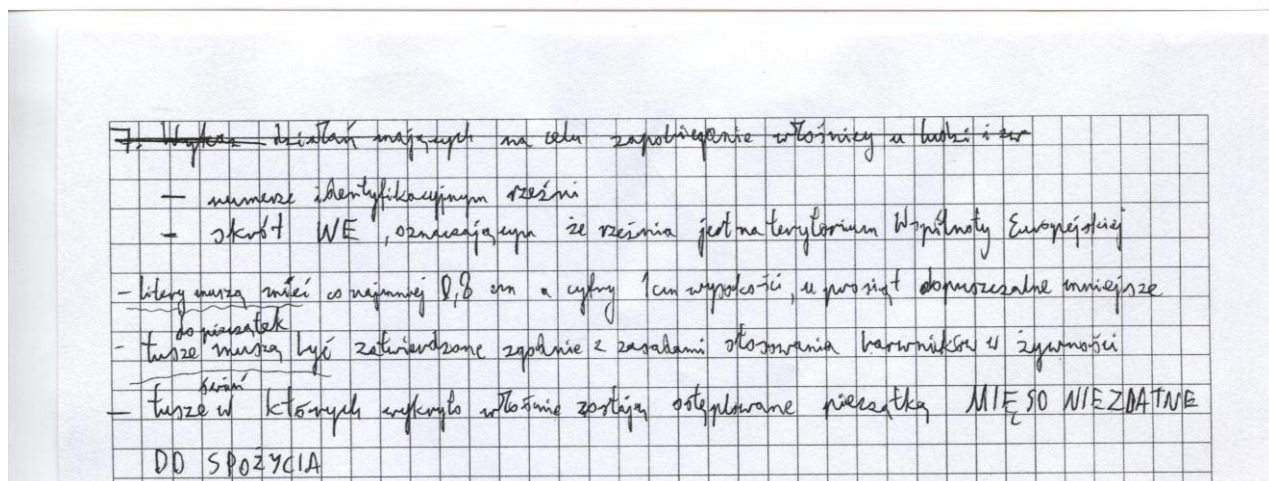 7. Wykaz działań mających na celu zapobieganie włośnicy u ludzi i zw
- numerze identyfikacyjnym rzeźni
- skrót WE, oznaczającym że rzeźnia jest na terytorium Wspólnoty Europejskiej
- litery muszą mieć co najmniej 0,8 cm a cyfry 1cm wysokości, u prosiąt dopuszczalne mniejsze
do pieczątek
- tusze muszą być zatwierdzone zgodnie z zasadami stosowania barwników w żywności
świń
- tusze w których wykryto włośnie zostają ostęplowane pieczątką MIĘSO NIEZDATNE
DO SPOŻYCIA